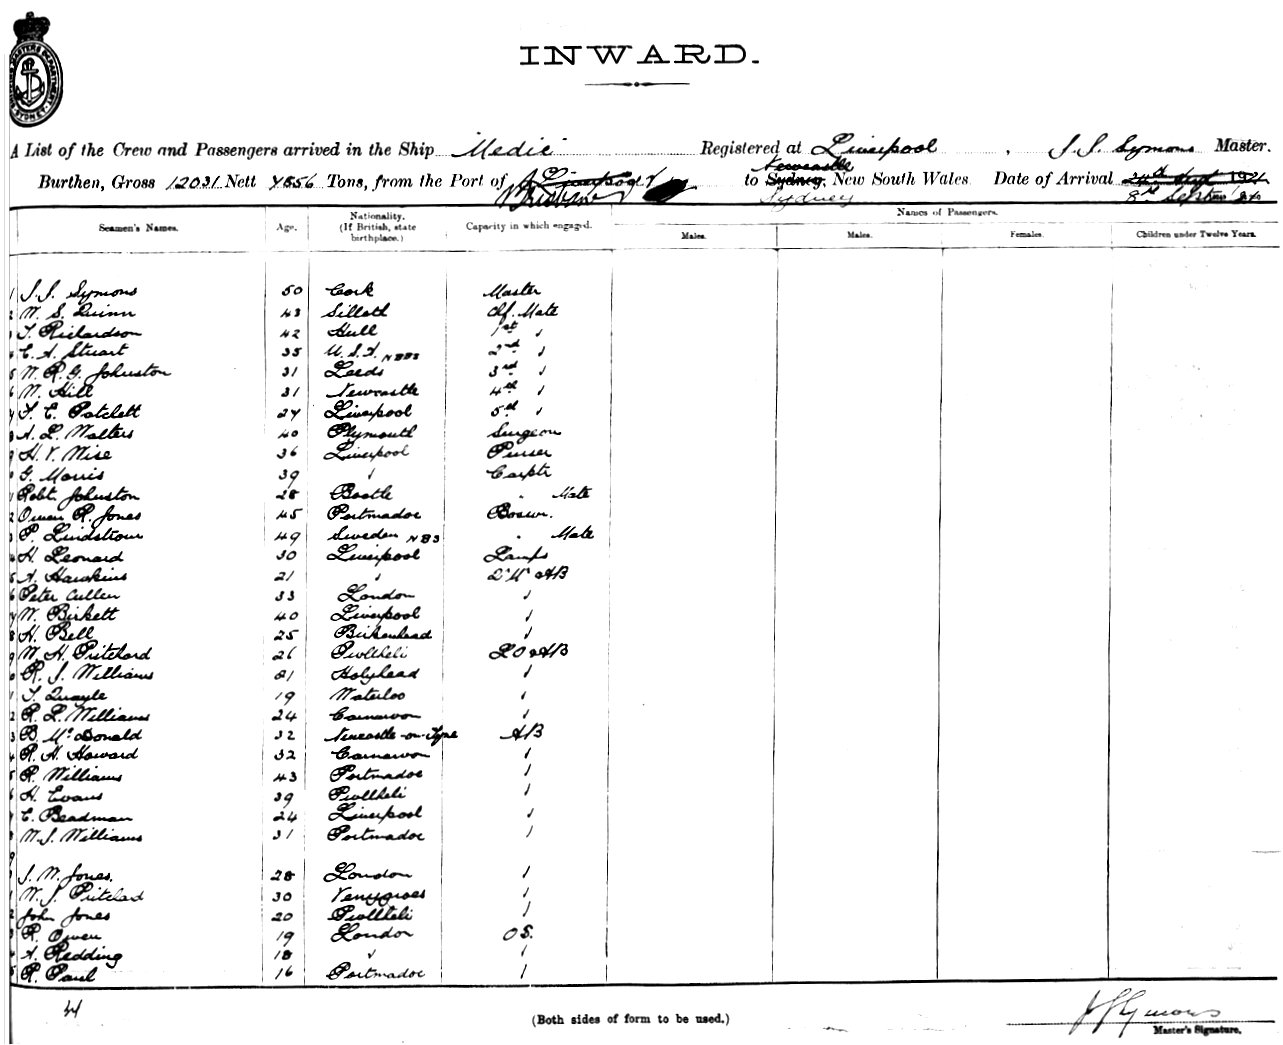 INWARD.
A List of the Crew and Passengers arrived in the Ship Medic Registered at Liverpool, J. J. Symons Master.
Burthen, Gross 12031 Nett Tons, from the Port of Liverpool Brisbane to Sydney, Newcastle New South Wales Date of Arrival 24th Sept 1921
Sydney 8th Sept
Names of Passengers.
Seamen's Names. Age. Nationality. (If British, state birthplace.) Capacity in which engaged. Males. Males. Females. Children under Twelve Years.
1 J. J. Symons 50 Cork Master
2 W. S. Quinn 43 Silloth Chf. Mate
3 T. Richardson 42 Hull 1st "
4 C. A. Stuart 35 U.S.A. NBBS 2nd "
5 W. R. G. Johnston 31 Leeds 3rd "
6 W. Hill 31 Newcastle 4th "
7 T. E. Patchett 27 Liverpool 5th "
8 A. L. Walters 40 Plymouth Surgeon
9 H. V. Wise 36 Liverpool Purser
0 G. Morris 39 " Carptr
1 Robt. Johnston 28 Bootle " Mate
2 Owen R. Jones 45 Portmadoc Boswn.
3 P. Lindstrom 49 Sweden NBS " Mate
4 H. Leonard 30 Liverpool Lamps
5 A. Hawkins 21 " Q'M AB
6 Peter Cullen 33 London "
7 W. Birkett 40 Liverpool "
8 H. Bell 25 Birkenhead "
9 W. H. Pritchard 26 Pwllheli LO AB
0 R. J. Williams 21 Holyhead "
1 T. Quayle 19 Waterloo "
2 R. L. Williams 24 Carnarvon "
3 B. McDonald 32 Newcastle-on-Tyne AB
4 R. H. Howard 32 Carnarvon "
5 R. Williams 43 Portmadoc "
6 H. Evans 39 Pwllheli "
7 C. Beadman 24 Liverpool "
8 W. J. Williams 31 Portmadoc "
9
0 J. W. Jones. 28 London "
1 W. J. Pritchad 30 "
2 John Jones 20 Pwllheli "
3 R. Owen 19 London OS.
4 A. Redding 18 " "
5 R. Paul 16 Portmadoc "
(Both sides of form to be used.)
J J Symons
Master's Signature.